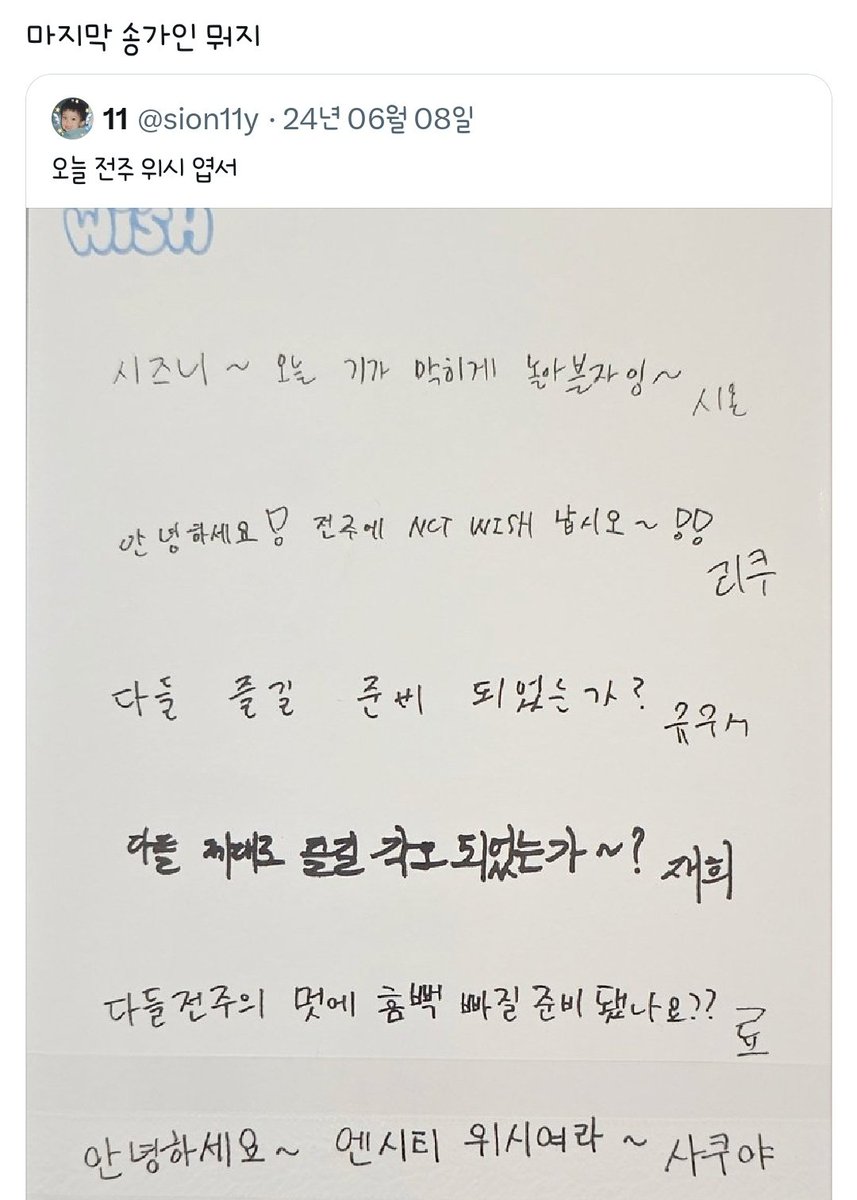 마지막 송가인 뭐지
11 @sion11y · 24년 06월 08일
오늘 전주 위시 엽서
WISH
시즈니 ~ 오늘 기가 막히게 놀아볼자잉~
시온
안녕하세요! 전주에 NCT WISH 납시오~!!
리쿠
다들 즐길 준비 되었는가?
큐우시
다들 제대로 즐길 각오 되었는가~?
재희
다들 전주의 멋에 흠뻑 빠질 준비 됐나요??
료
안녕하세요~ 엔시티 위시여라 ~ 사쿠야